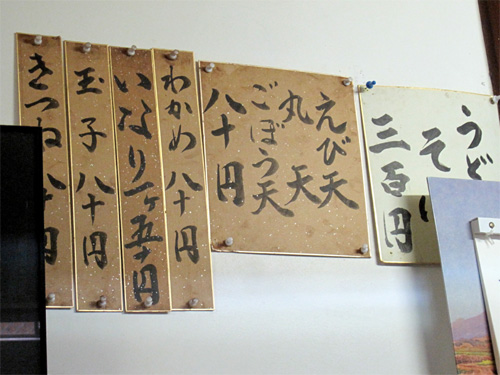 うど
そば
三百円
えび天
丸天
ごぼう天
八十円
わかめ 八十円
いなり一ヶ五十円
玉子 八十円
きつね 八十